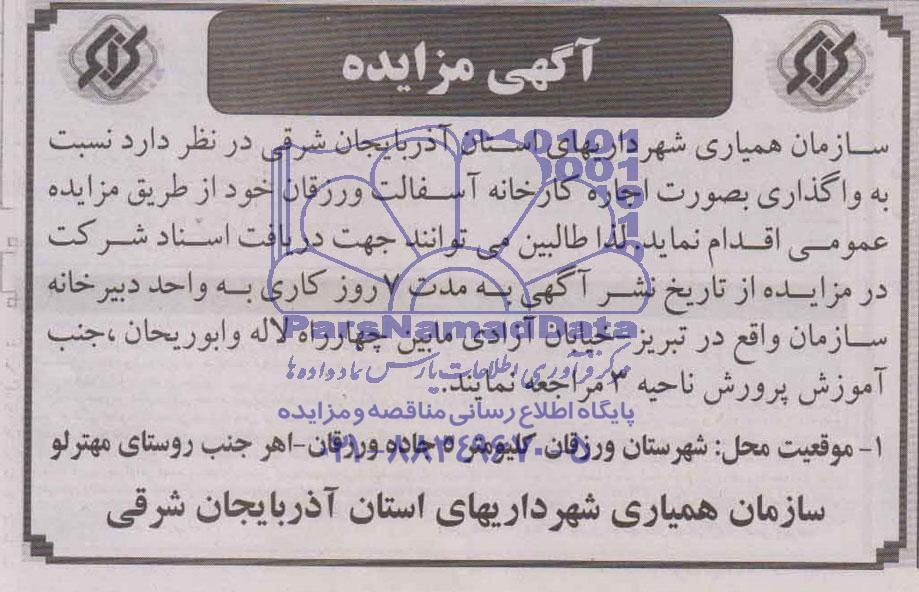 آگهی مزایده
سازمان همیاری شهرداریهای استان آذربایجان شرقی در نظر دارد نسبت
به واگذاری بصورت اجاره کارخانه آسفالت ورزقان خود از طریق مزایده
عمومی اقدام نماید. لذا طالبین می توانند جهت دریافت اسناد شرکت
در مزایده از تاریخ نشر آگهی به مدت ۷ روز کاری به واحد دبیرخانه
سازمان واقع در تبریز-خیابان آزادی مابین چهارراه لاله وابوریحان ،جنب
آموزش پرورش ناحیه ۳ مراجعه نمایند.
۱- موقعیت محل: شهرستان ورزقان کلیومتر ۵ جاده ورزقان-اهر جنب روستای مهترلو
سازمان همیاری شهرداریهای استان آذربایجان شرقی
ParsNamadData
مرکز فرآوری اطلاعات پارس نماد داده ها
پایگاه اطلاع رسانی مناقصه و مزایده